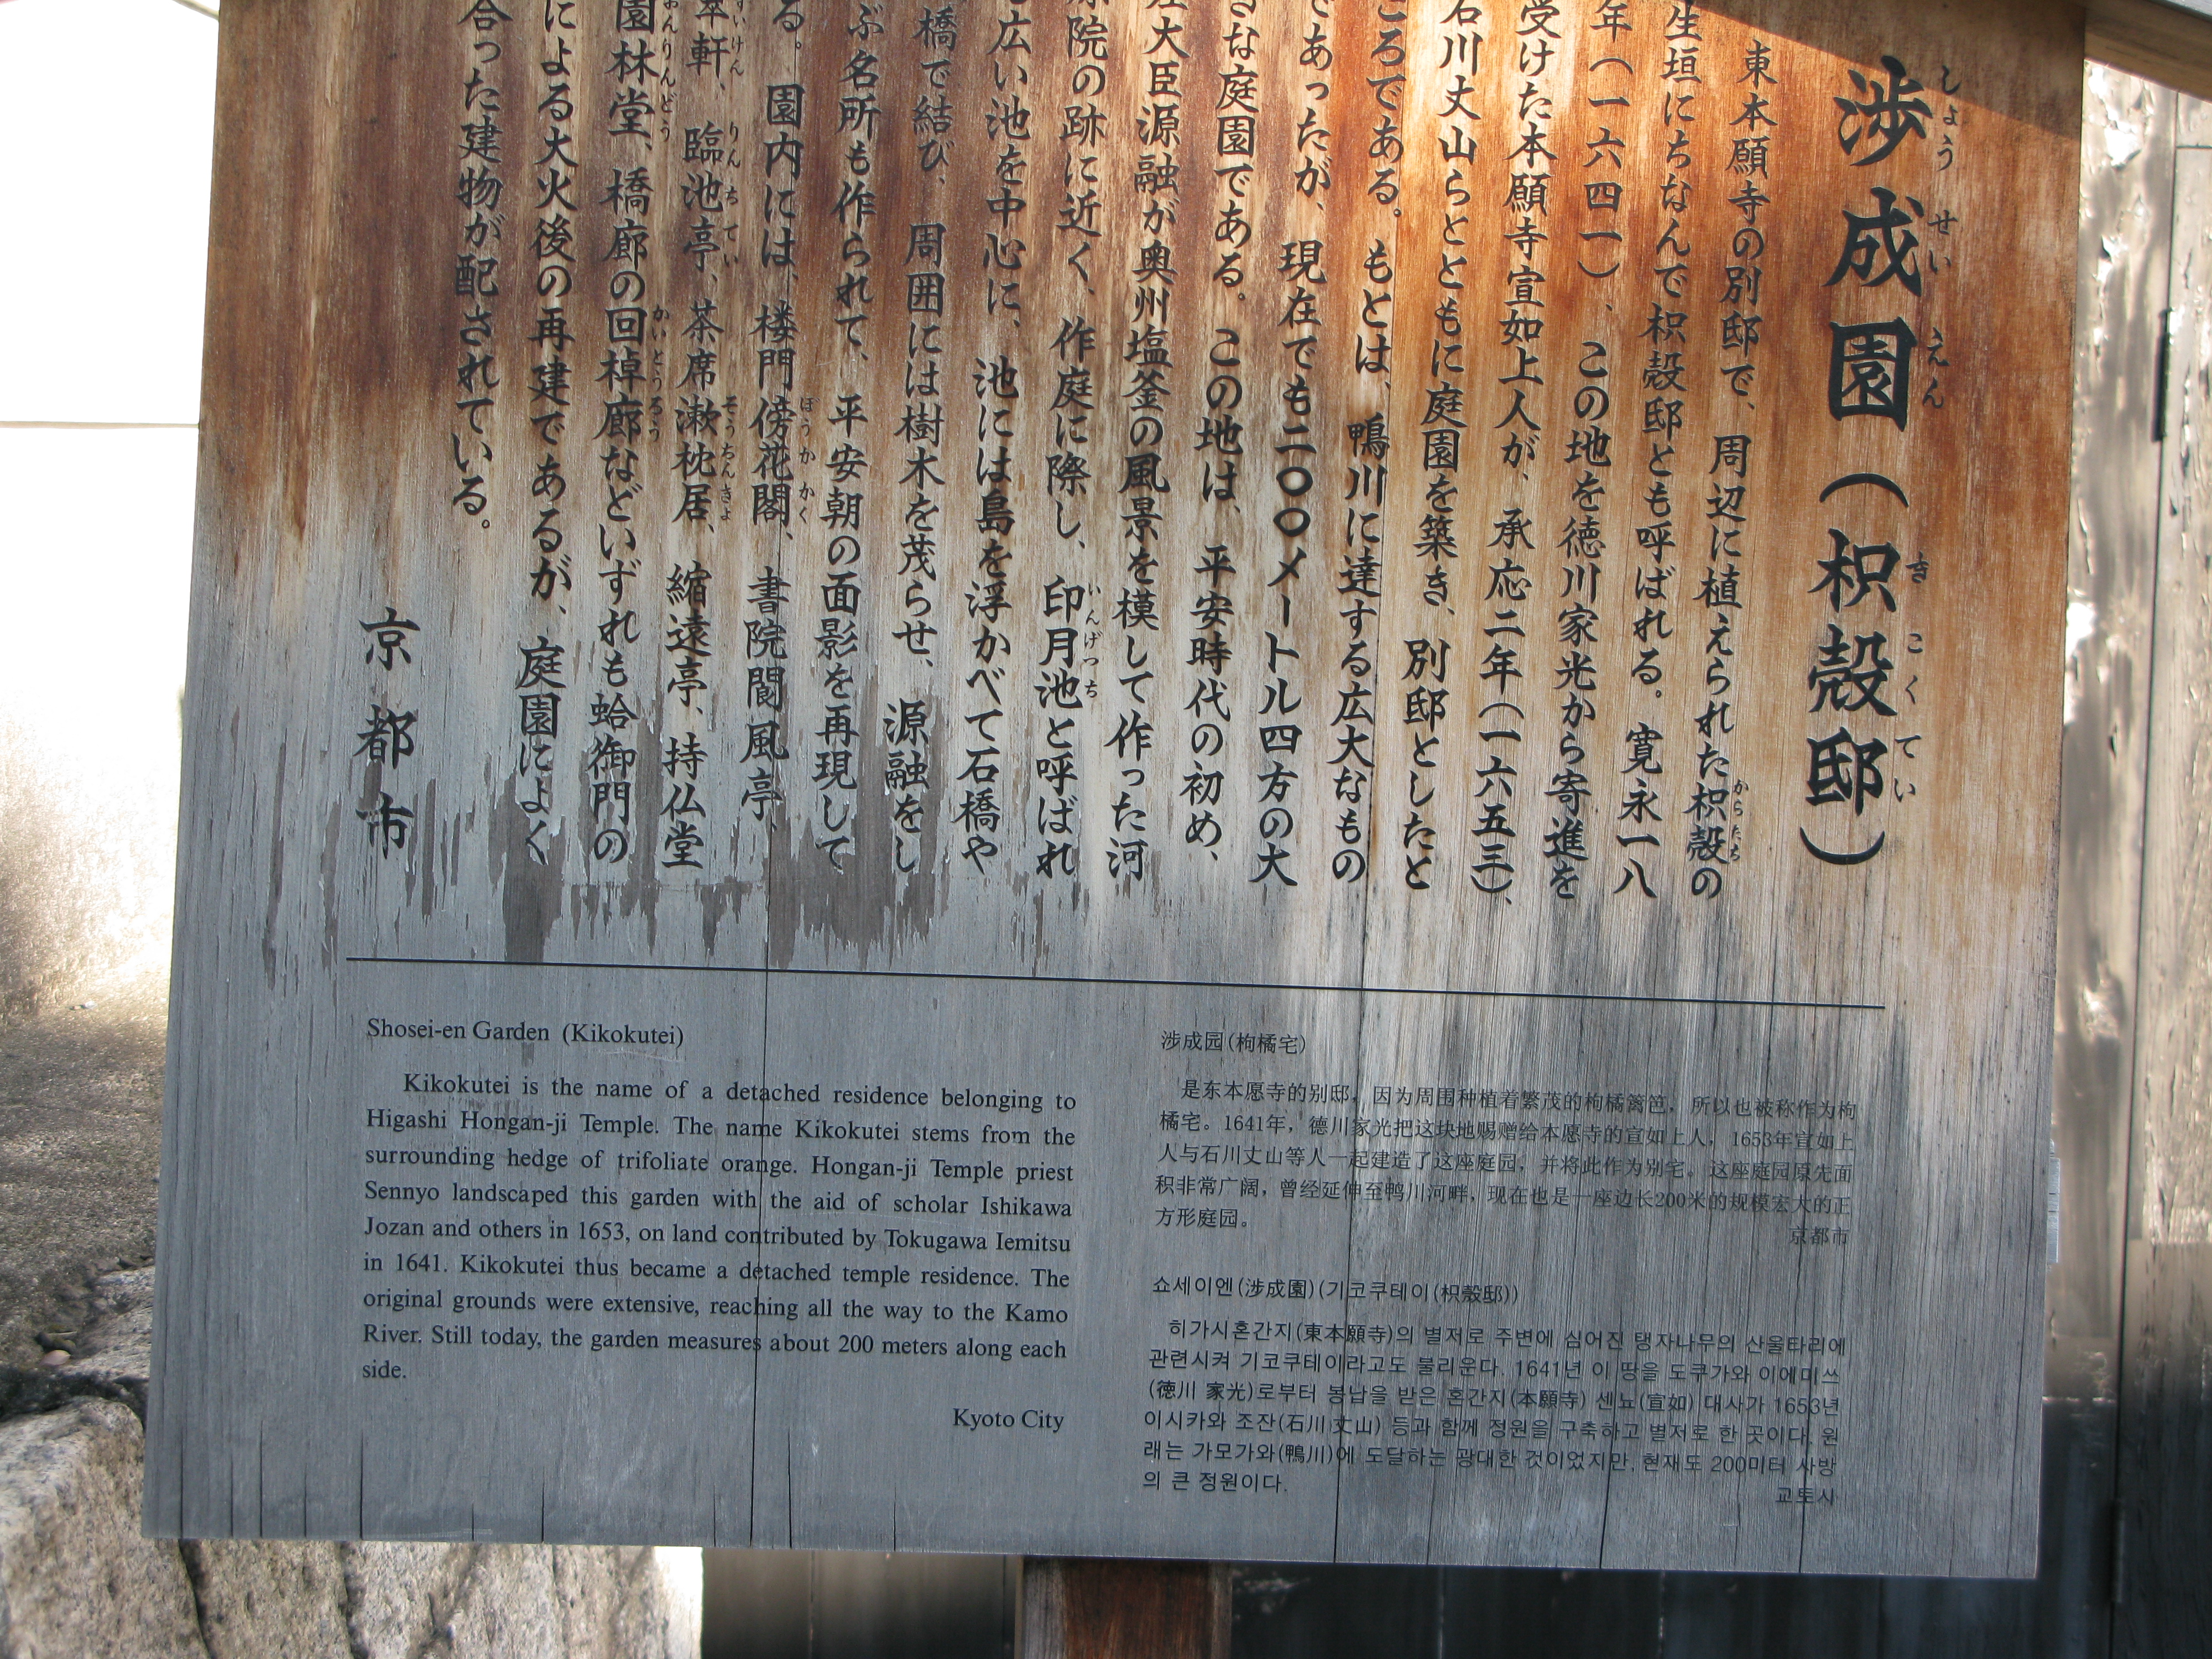 渉成園（枳殻邸）
東本願寺の別邸で、周辺に植えられた枳殻の
生垣にちなんで枳殻邸とも呼ばれる。寛永一八
年（一六四一）、この地を徳川家光から寄進を
受けた本願寺宣如上人が、承応二年（一六五三）、
石川丈山らとともに庭園を築き、別邸としたと
ころである。もとは、鴨川に達する広大なもの
であったが、現在でも二〇〇メートル四方の大
きな庭園である。この地は、平安時代の初め、
左大臣源融が奥州塩釜の風景を模して作った河
原院の跡に近く、作庭に際し、印月池と呼ばれ
る広い池を中心に、池には島を浮かべて石橋や
橋で結び、周囲には樹木を茂らせ、源融をし
ぶ名所も作られて、平安朝の面影を再現して
る。園内には、楼門傍花閣、書院閬風亭、
翠軒、臨池亭、茶席漱枕居、縮遠亭、持仏堂
園林堂、橋廊の回棹廊などいずれも蛤御門の
による大火後の再建であるが、庭園によく
合った建物が配されている。
京都市
Shosei-en Garden (Kikokutei)
Kikokutei is the name of a detached residence belonging to
Higashi Hongan-ji Temple. The name Kikokutei stems from the
surrounding hedge of trifoliate orange. Hongan-ji Temple priest
Sennyo landscaped this garden with the aid of scholar Ishikawa
Jozan and others in 1653, on land contributed by Tokugawa Iemitsu
in 1641. Kikokutei thus became a detached temple residence. The
original grounds were extensive, reaching all the way to the Kamo
River. Still today, the garden measures about 200 meters along each
side.
Kyoto City
涉成园(枸橘宅)
是东本愿寺的别邸，因为周围种植着繁茂的枸橘篱笆，所以也被称作为枸
橘宅。1641年，德川家光把这块地赐赠给本愿寺的宣如上人，1653年宣如上
人与石川丈山等人一起建造了这座庭园，并将此作为别宅。这座庭园原先面
积非常广阔，曾经延伸至鸭川河畔，现在也是一座边长200米的规模宏大的正
方形庭园。
京都市
쇼세이엔(涉成園)(기코쿠테이(枳殼邸))
히가시혼간지(東本願寺)의 별저로 주변에 심어진 탱자나무의 산울타리에
관련시켜 기코쿠테이라고도 불리운다. 1641년 이 땅을 도쿠가와 이에미쓰
(德川 家光)로부터 봉납을 받은 혼간지(本願寺) 센뇨(宣如) 대사가 1653년
이시카와 조잔(石川 丈山) 등과 함께 정원을 구축하고 별저로 한 곳이다. 원
래는 가모가와(鴨川)에 도달하는 광대한 것이었지만, 현재도 200미터 사방
의 큰 정원이다.
교토시